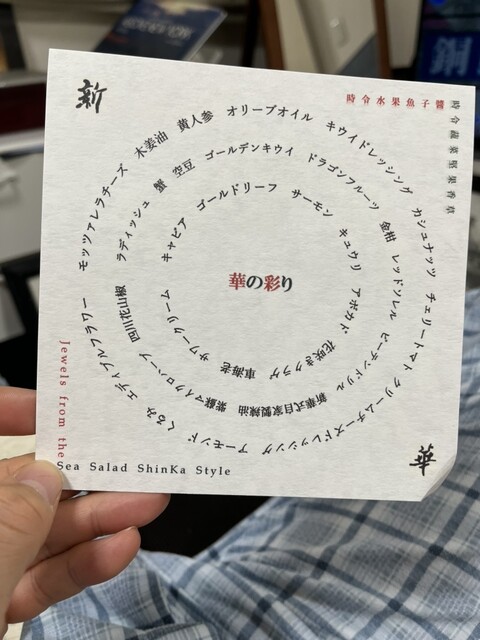 新
時令水果魚子醬
時令蔬菜堅果香草
オリーブオイル キウイドレッシング カシュナッツ チェリートマト クリームチーズドレッシング アーモンド くるみ エディブルフラワー モッツァレラチーズ 木姜油 黄人参
ゴールデンキウイ ドラゴンフルーツ 金柑 レッドソレル ピーテンドリル 新華式自家製辣油 紫蘇マイクロハーブ 四川花山椒 ラディッシュ 蟹 空豆
ゴールドリーフ サーモン キュウリ アボカド 花咲きクラゲ 車海老 サワークリーム キャビア
華の彩り
Jewels from the
Sea Salad ShinKa Style
華